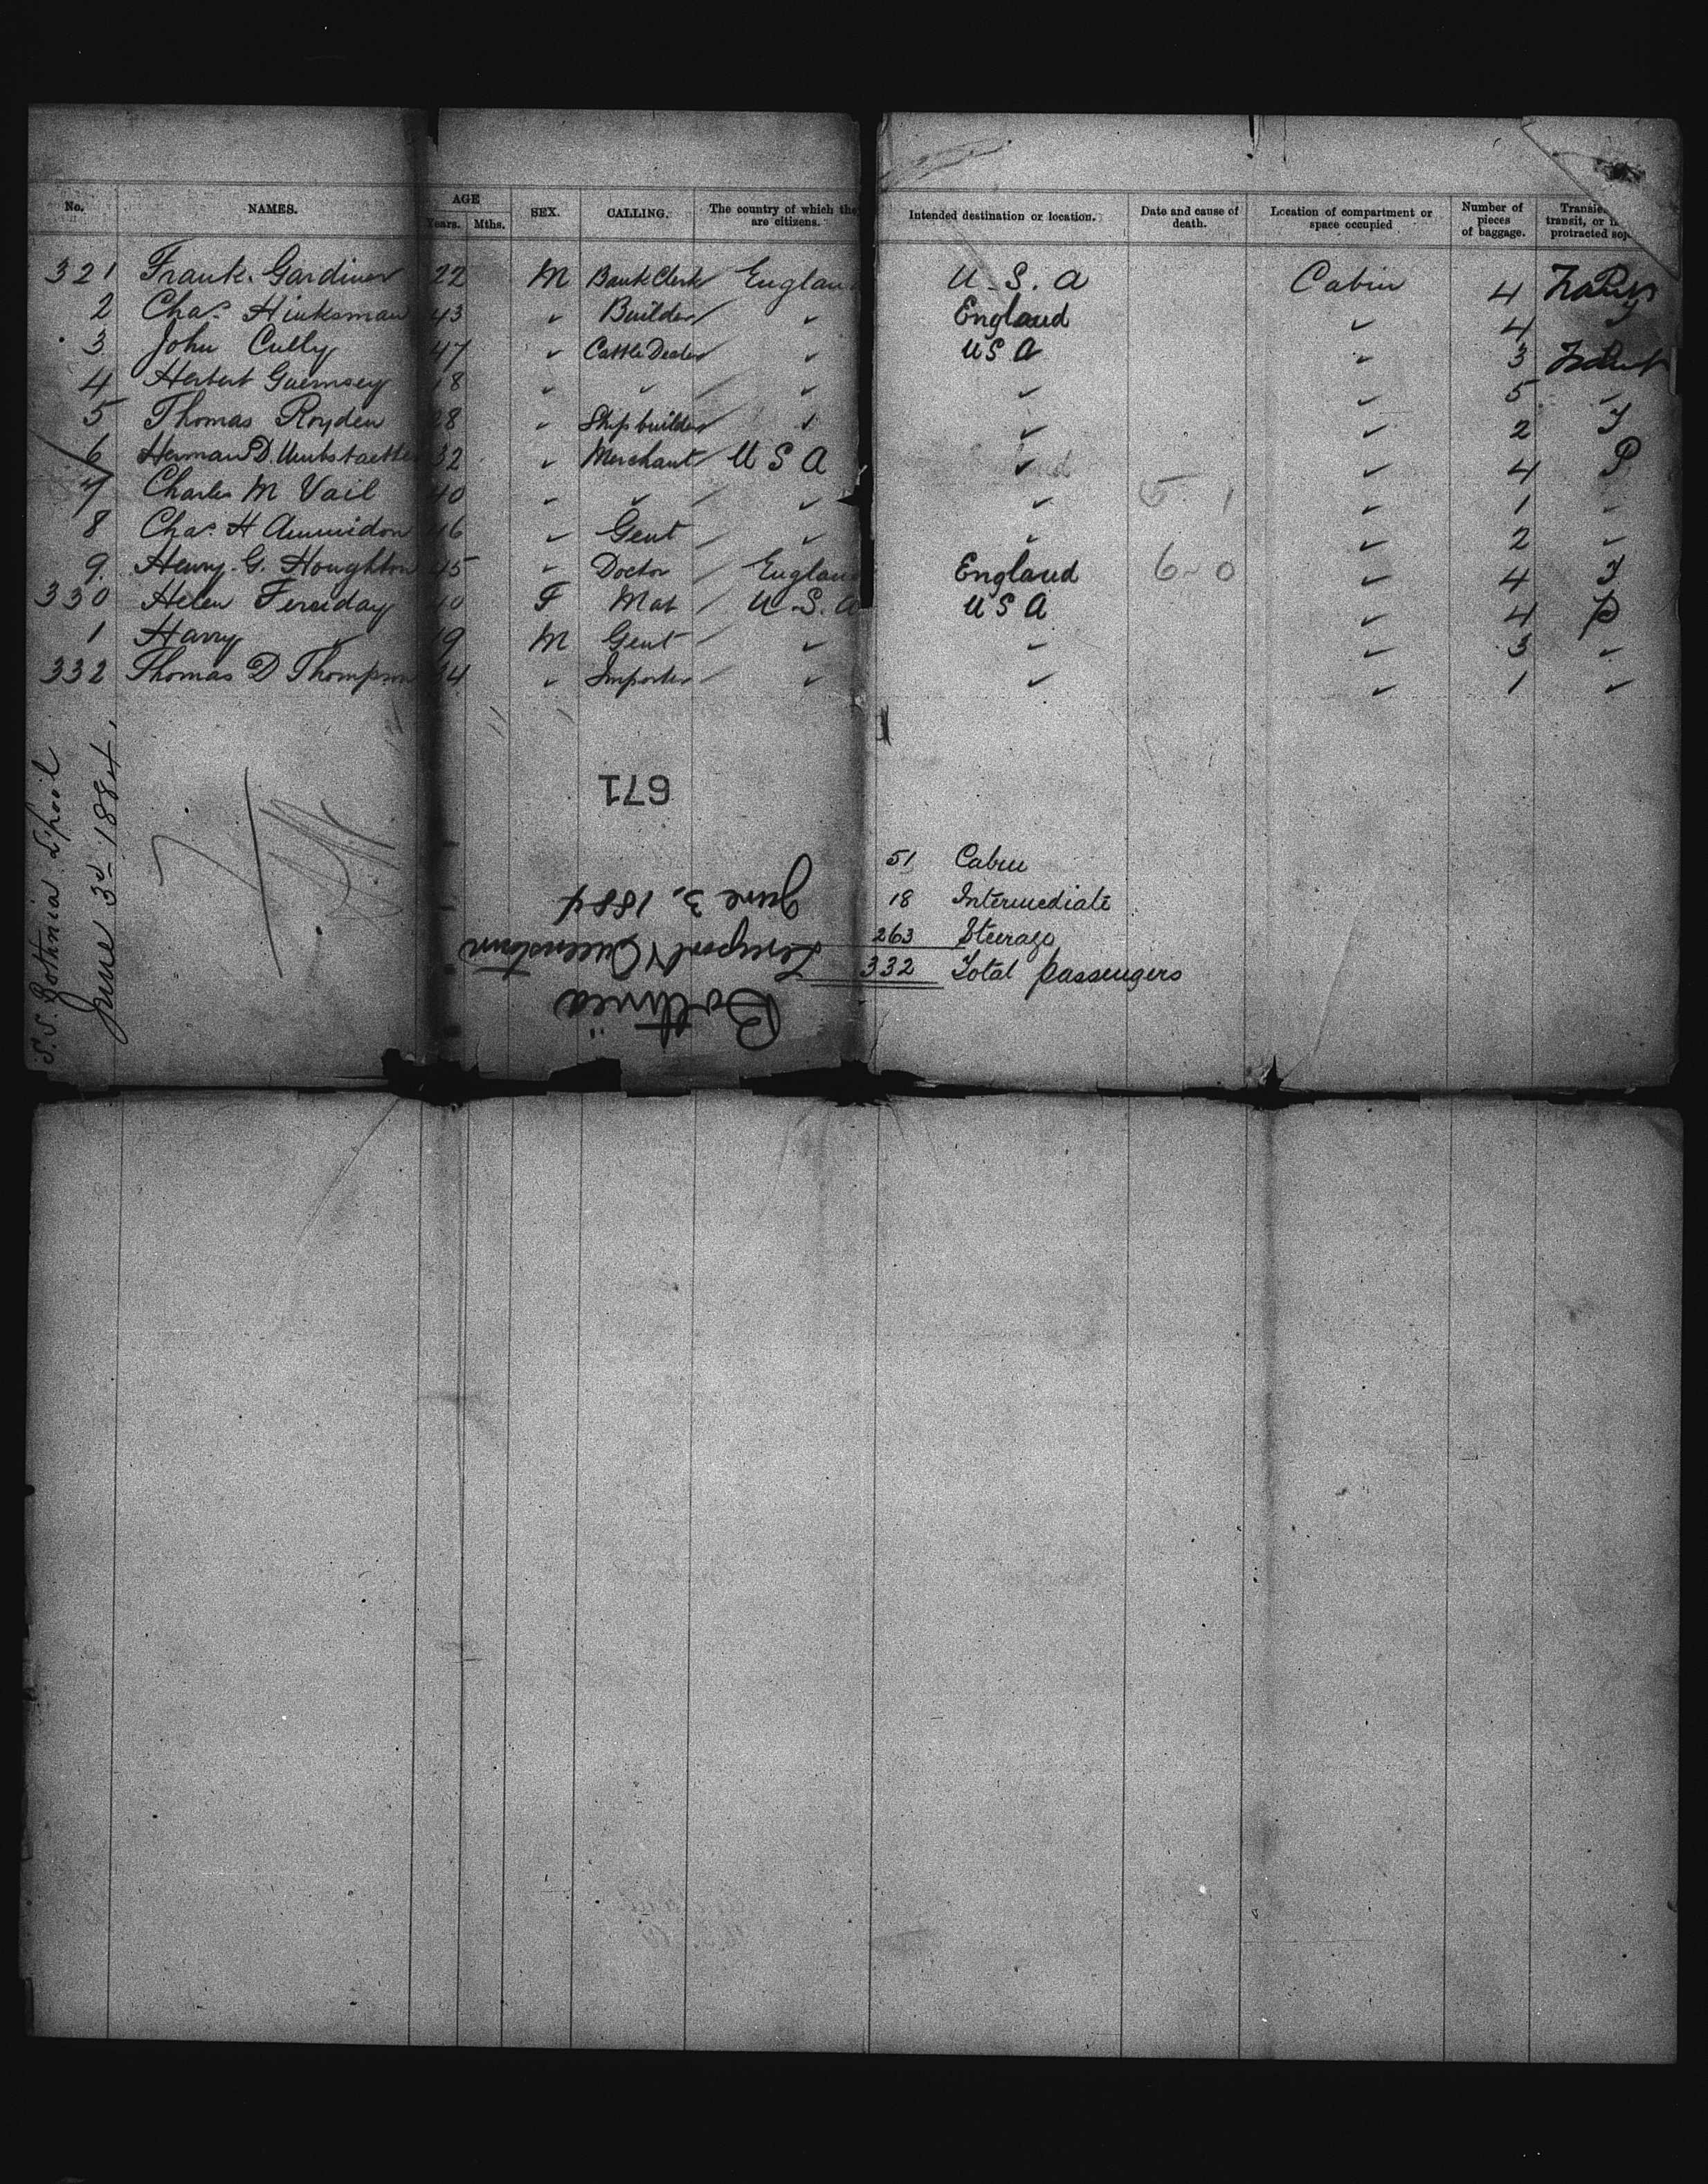 No. NAMES. AGE Years. Mths. SEX. CALLING. The country of which the are citizens. Intended destination or location. Date and cause of death. Location of compartment or space occupied Number of pieces of baggage. transit, or protracted
321 Frank Gardiner 22 M Bank Clerk England U.S.A Cabin 4
2 Chas. Hinksman 43 ✓ Builder ✓ England ✓ 4
3 John Cully 47 ✓ Cattle Dealer ✓ U S A ✓ 3
4 Herbert Guernsey 18 ✓ ✓ ✓ ✓ ✓ 5 ✓
5 Thomas Royden 28 ✓ Shipbuilder ✓ ✓ ✓ 2 T
6 Herman D. Umbstaetter 32 ✓ Merchant U S A ✓ ✓ 4 P
7 Charles M Vail 40 ✓ ✓ ✓ ✓ 5 1 ✓ 1 ✓
8 Chas. H Ammidon 16 ✓ Gent ✓ ✓ ✓ 2 ✓
9 Henry G. Houghton 45 ✓ Doctor England England 6-0 ✓ 4 T
330 Helen Fereday 40 F Mat U.S.A U S A ✓ 4 P
1 Harry 19 M Gent ✓ ✓ ✓ 3 ✓
332 Thomas D Thompson 34 ✓ Importer ✓ ✓ ✓ 1 ✓
S.S. Bothnia L'pool
June 3d 1884
671
Bothnia
Liverpool & Queenstown
June 3. 1884
51 Cabin
18 Intermediate
263 Steerage
332 Total passengers